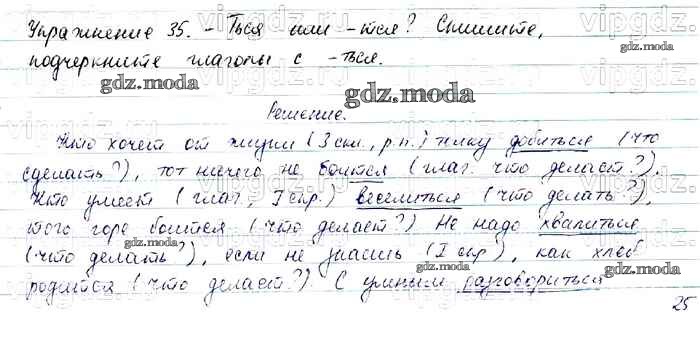 Упражнение 35. -Ться или -тся? Спишите,
подчеркните глаголы с -ться.
gdz.moda
gdz.moda
Решение.
Кто хочет от жизни (3 скл., р.п.) толку добиться (что
сделать?), тот ничего не боится (глаг. что делает?).
Кто умеет (глаг., I спр.) веселиться (что делать?),
того горе боится (что делает?) Не надо хвалиться
(что делать?), если не знаешь (I спр), как хлеб
gdz.moda
родится (что делает?). С умным разговориться
gdz.moda
25